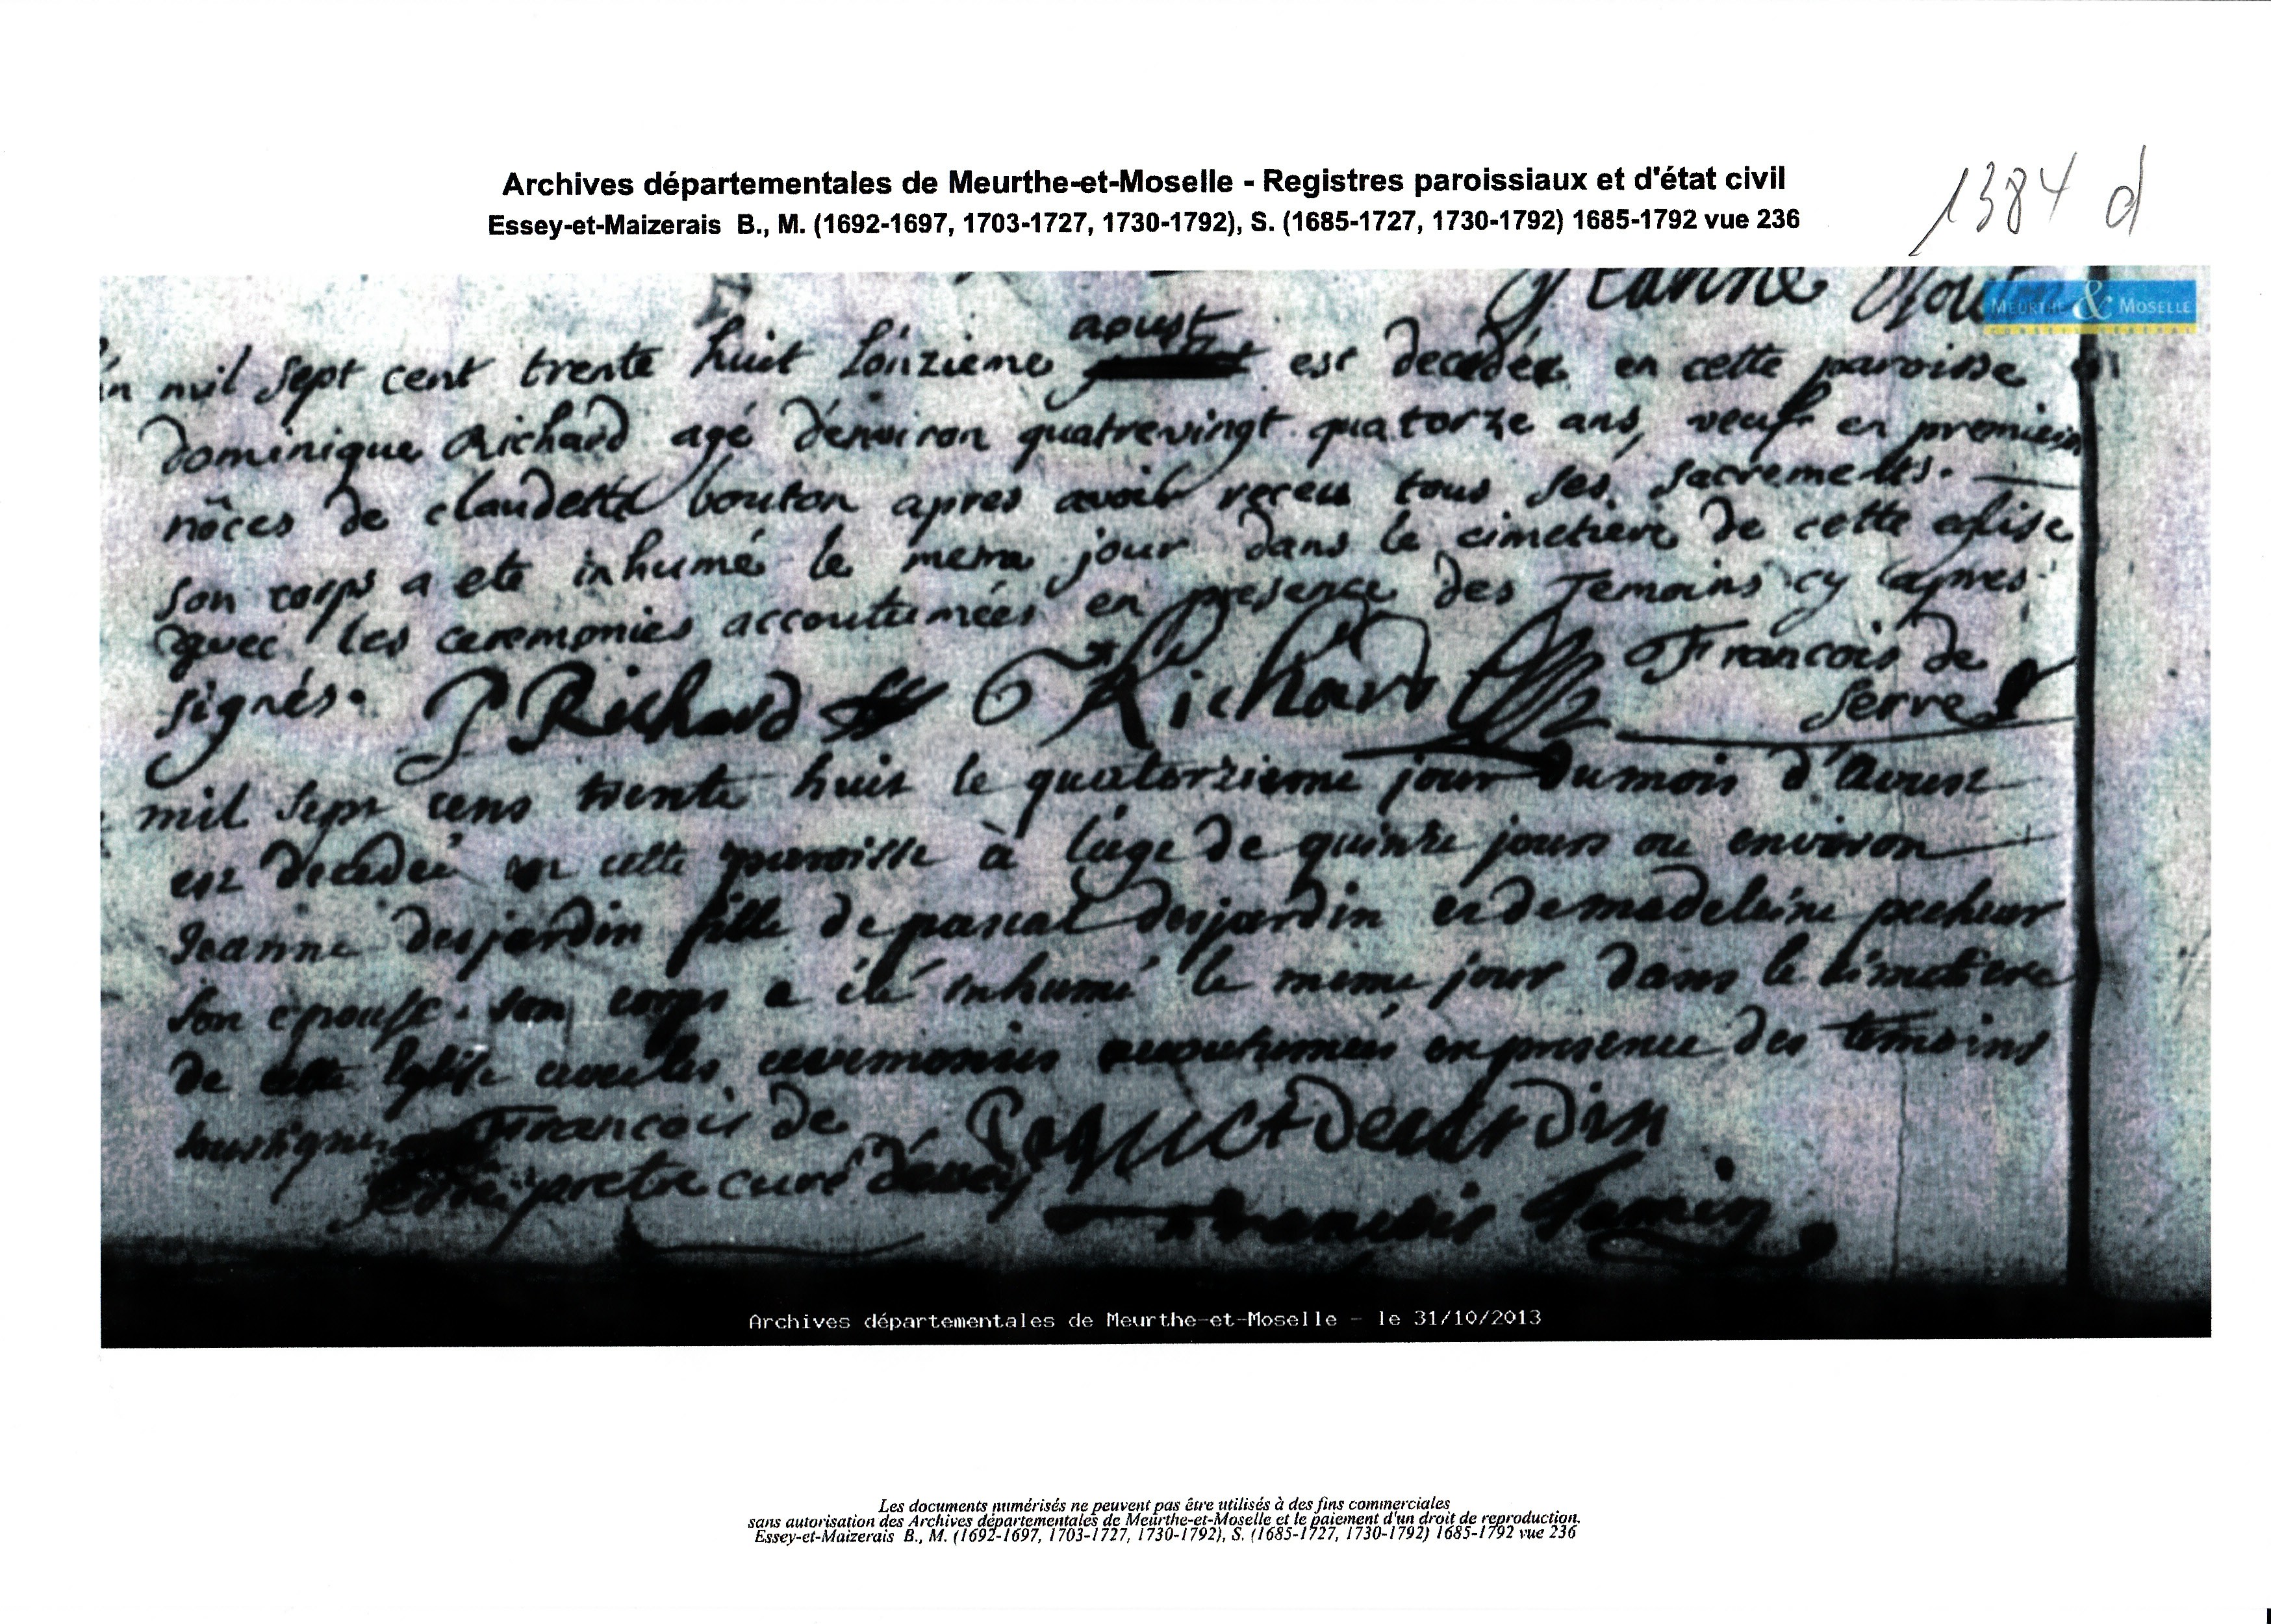 Archives départementales de Meurthe-et-Moselle - Registres paroissiaux et d'état civil
Essey-et-Maizerais B., M. (1692-1697, 1703-1727, 1730-1792), S. (1685-1727, 1730-1792) 1685-1792 vue 236
1384 d
Jeanne
MEURTHE & MOSELLE
CONSEIL GENERAL
aoust
mil sept cent trente huit l'onzieme est decedée en cette paroisse
dominique Richard agé d'environ quatrevingt quatorze ans, veuf en premiere
nôces de claudette bouton apres avoir receu tous ses sacrements.
son corps a eté inhumé le meme jour dans le cimetiere de cette eglise
avec les ceremonies accoutumées en presence des Temoins cy apres
signés. P Richard Richard François de
Serre
mil sept cens trente huit le quatorzieme jour du mois d'Aoust
est decedeé en cette paroisse à l'âge de quinze jours ou environ
Jeanne desjardin fille de pascal desjardin et de madeleine pecheur
son epouse. son corps a été inhumé le meme jour dans le cimetiere
de cette Eglise avec les ceremonies accoutumées en presence des temoins
soussignés François de
Serre pretre curé d'essey
François
Archives départementales de Meurthe-et-Moselle - le 31/10/2013
Les documents numérisés ne peuvent pas être utilisés à des fins commerciales
sans autorisation des Archives départementales de Meurthe-et-Moselle et le paiement d'un droit de reproduction.
Essey-et-Maizerais B., M. (1692-1697, 1703-1727, 1730-1792), S. (1685-1727, 1730-1792) 1685-1792 vue 236